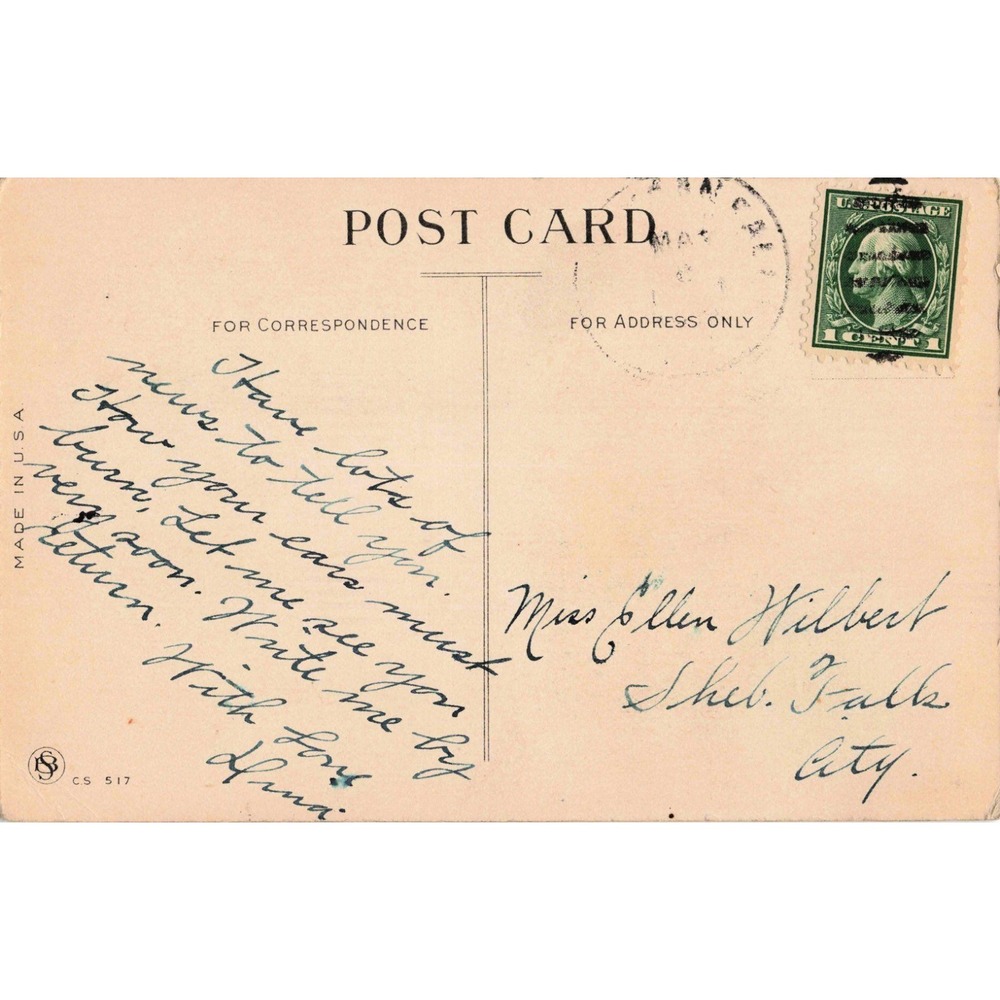 POST CARD
FOR CORRESPONDENCE
FOR ADDRESS ONLY
U.S. POSTAGE
1 CENT 1
MADE IN U.S.A
Have lots of
news to tell you.
How your ears must
burn, Let me see you
very soon. Write me by
return.
With Love
Miss Ellen Wilbert
Sheb. Falls
City.
C.S 517